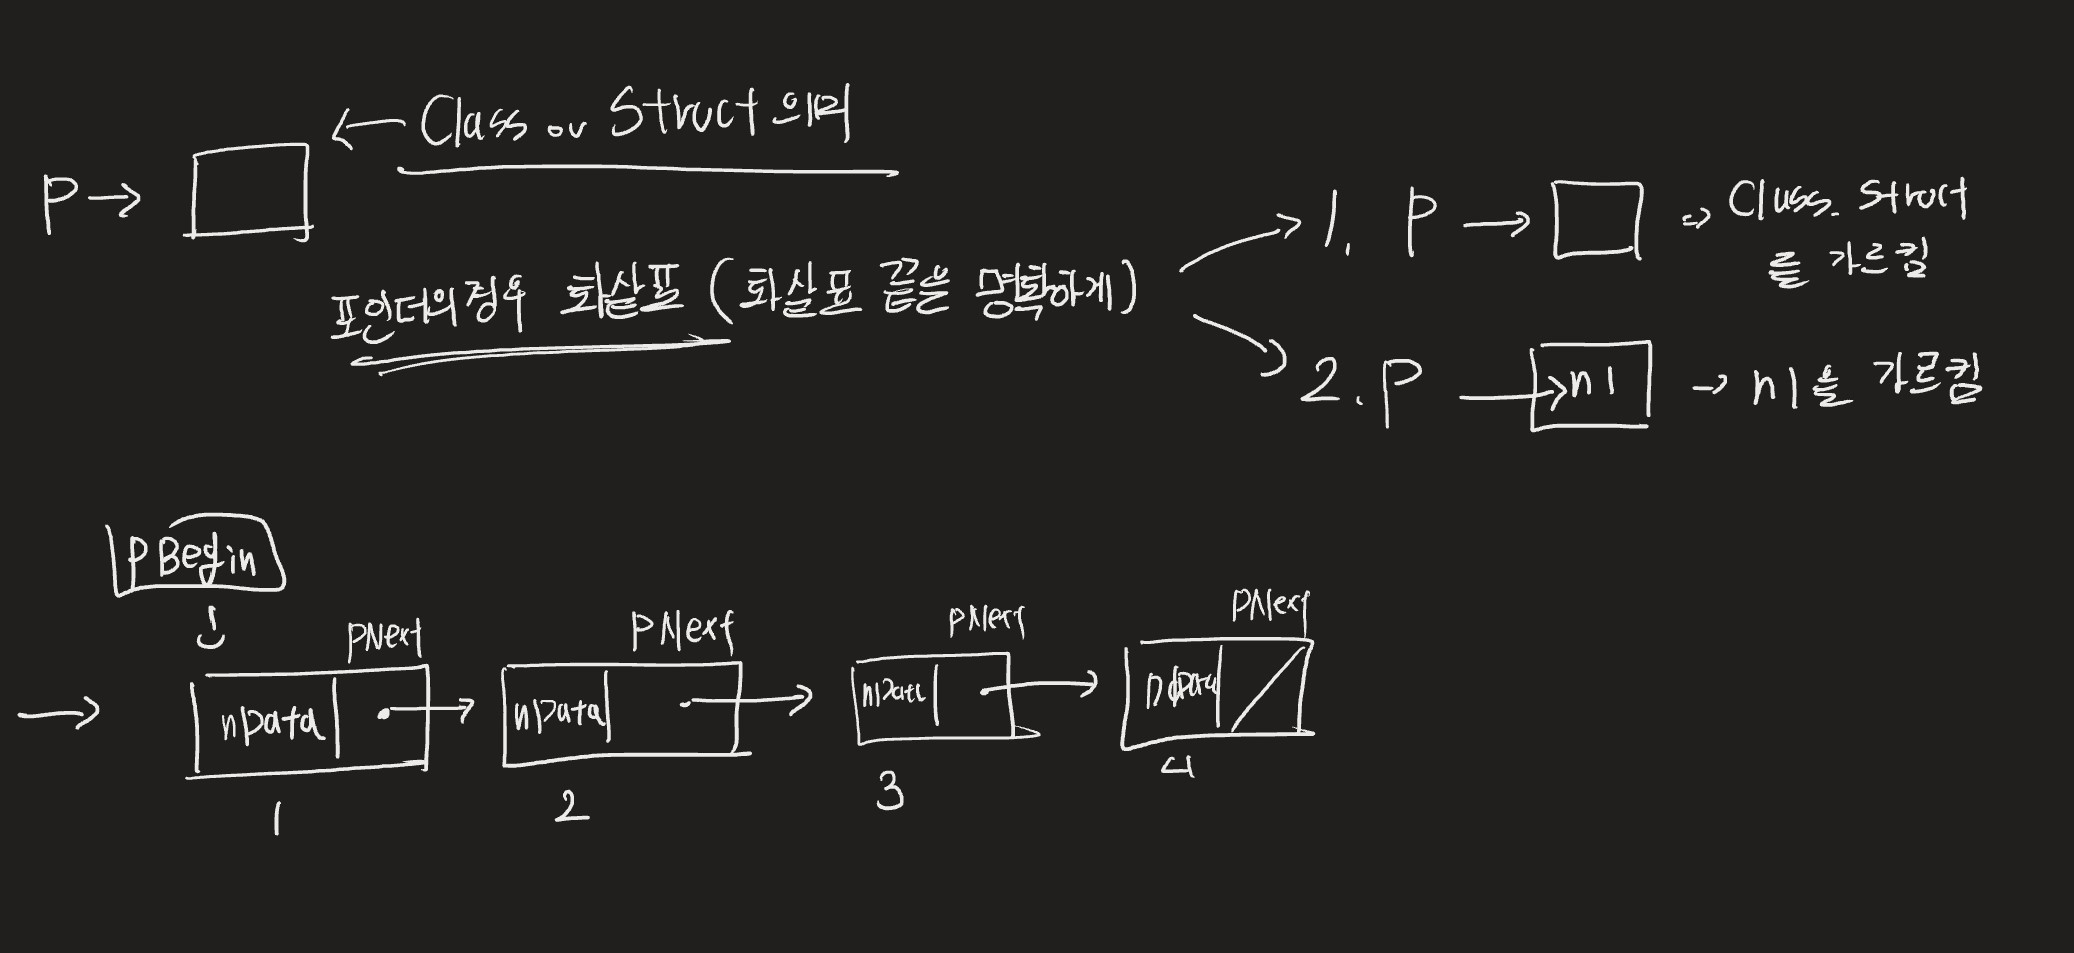 P → ← Class or Struct 의미
포인터의 경우 화살표 (화살표 끝을 명확하게)
1. P → → Class. Struct
를 가르킴
2. P → n1 → n1을 가르킴
pBegin
pNext pNext pNext pNext
nData nData nData nData
1 2 3 4